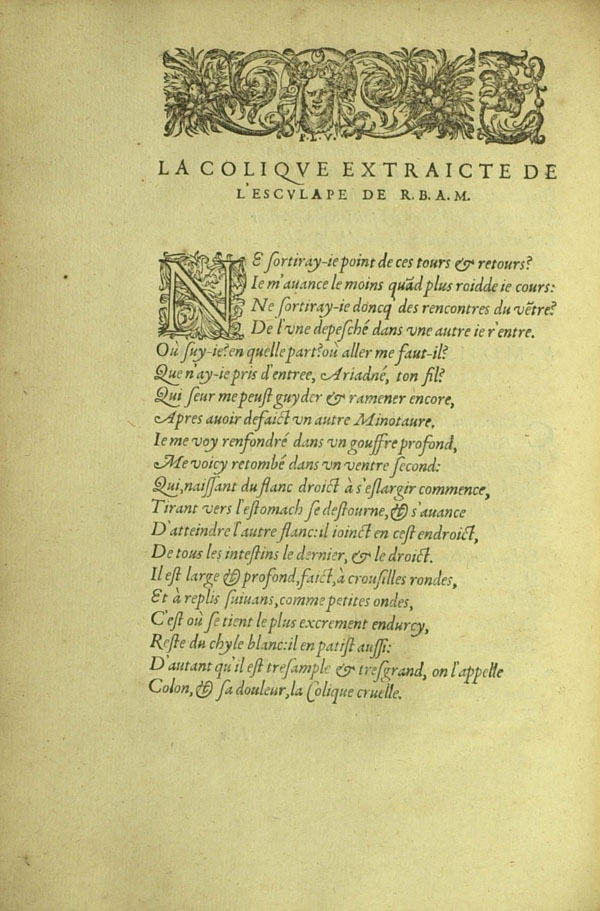 F.L.V.
LA COLIQVE EXTRAICTE DE
L'ESCVLAPE DE R. B. A. M.
NE ſortiray-ie point de ces tours & retours?
Ie m'auance le moins quãd plus roidde ie cours:
Ne ſortiray-ie doncq' des rencontres du vẽtre?
De l'vne depeſché dans vne autre ie r'entre.
Où ſuy-ie? en quelle part? où aller me faut-il?
Que n'ay-ie pris d'entree, Ariadné, ton fil?
Qui ſeur me peuſt guyder & ramener encore,
Apres auoir defaict vn autre Minotaure.
Ie me voy renfondré dans vn gouffre profond,
Me voicy retombé dans vn ventre ſecond:
Qui, naiſſant du flanc droict à s'eſlargir commence,
Tirant vers l'eſtomach ſe deſtourne, & s'auance
D'atteindre l'autre flanc: il ioinct en ceſt endroict,
De tous les inteſtins le dernier, & le droict.
Il eſt large & profond, faict, à crouſilles rondes,
Et à replis ſuiuans, comme petites ondes,
C'eſt où ſe tient le plus excrement endurcy,
Reſte du chyle blanc: il en patiſt auſſi:
D'autant qu'il eſt treſample & treſgrand, on l'appelle
Colon, & ſa douleur, la Colique cruelle.